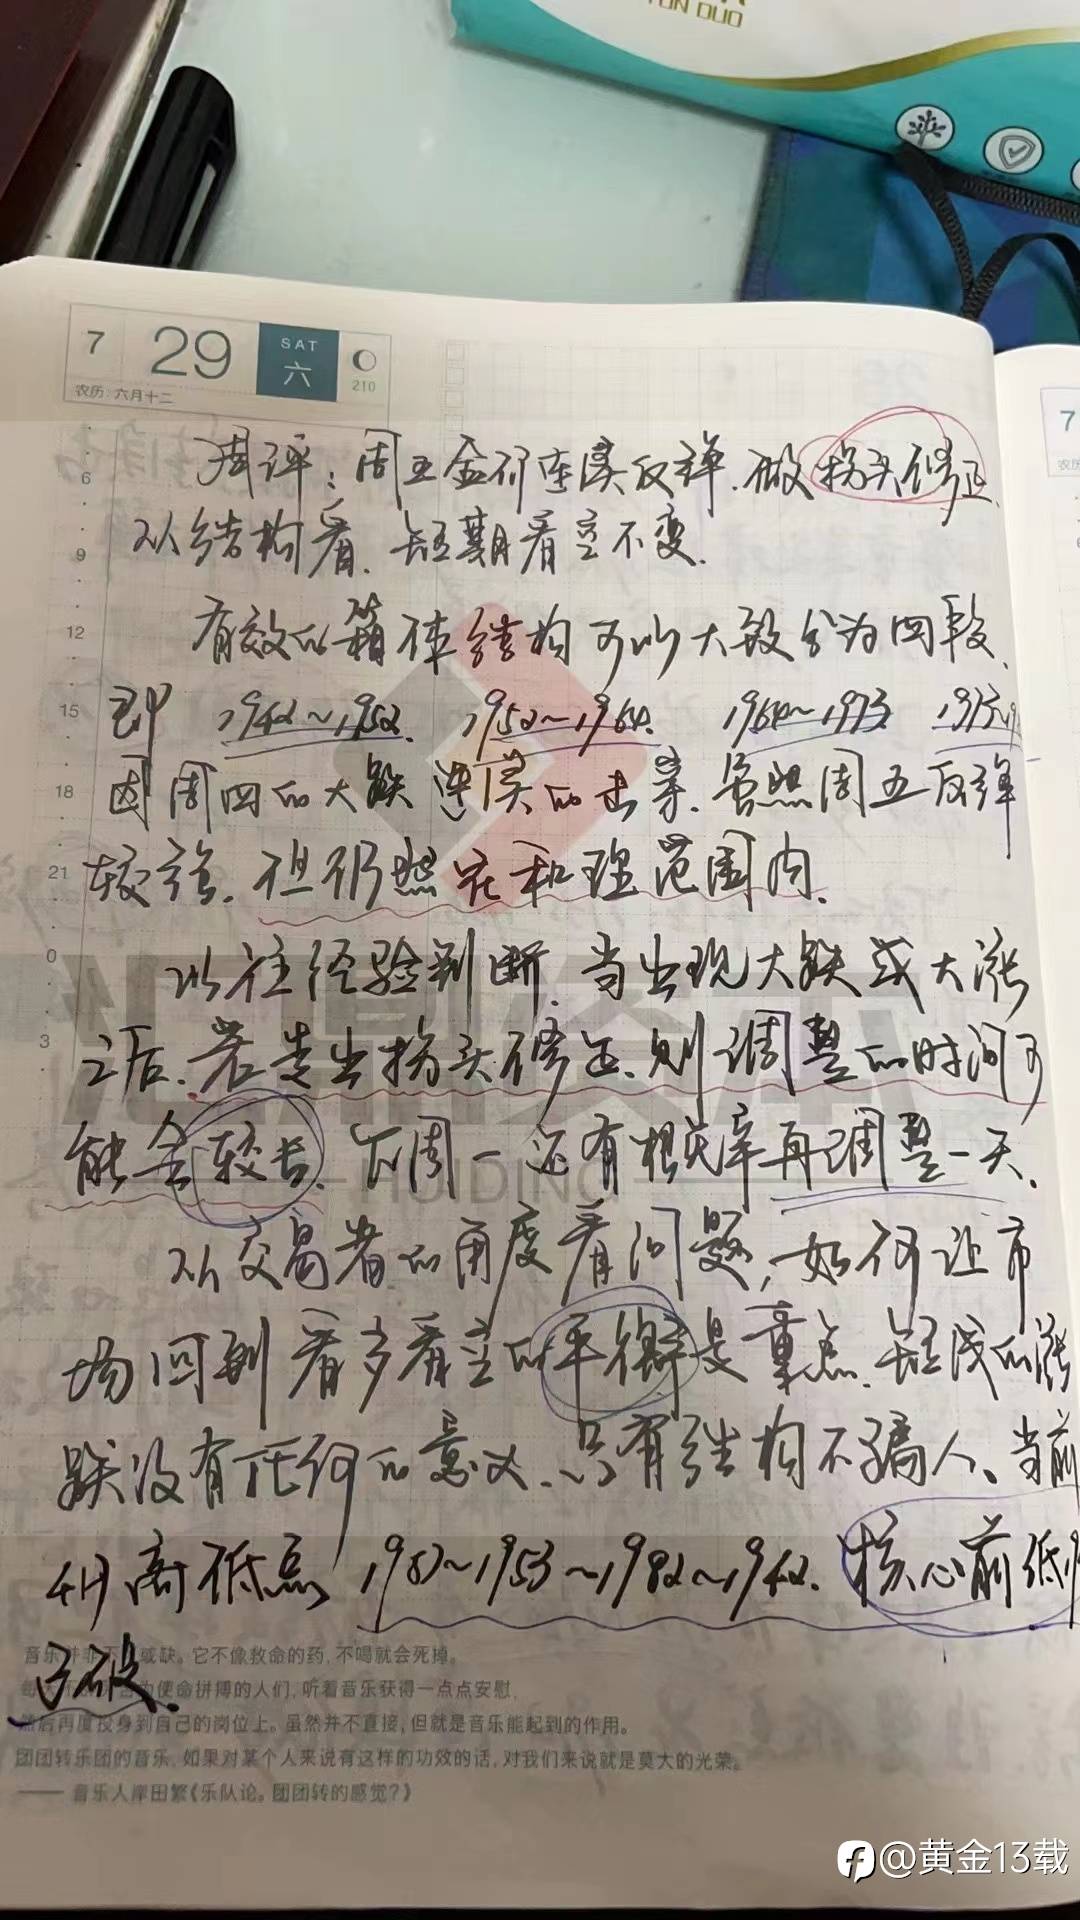 TUN DUO
7 29 SAT 六 210
农历:六月十二
7
农历
周评:周五金价连续反弹.做拐头修正.
以结构看.短期看空不变.
有效的箱体结构可以大致分为四段.
即 1942~1952. 1952~1964. 1964~1973 1973~19
因周四的大跌连续的击穿.虽然周五反弹
较强.但仍然在和理范围内.
以往经验判断.当出现大跌或大涨
之后.若走出拐头修正.则调整的时间可
能会较长.下周一还有概率再调整一天.
从交易者的角度看问题,如何让市
场回到看多看空的平衡是重点.短线的涨
跌没有任何的意义.只有结构不骗人、当前
4H高低点 1953~1982~1942. 核心前低
已破.
6
9
12
15
18
21
0
3
汇鼎资本
HUIDING
音乐并非不 或缺。它不像救命的药,不喝就会死掉。
为使命拼搏的人们,听着音乐获得一点点安慰,
然后再度投身到自己的岗位上。虽然并不直接,但就是音乐能起到的作用。
团团转乐团的音乐,如果对某个人来说有这样的功效的话,对我们来说就是莫大的光荣。
—— 音乐人岸田繁《乐队论。团团转的感觉?》
@黄金13载